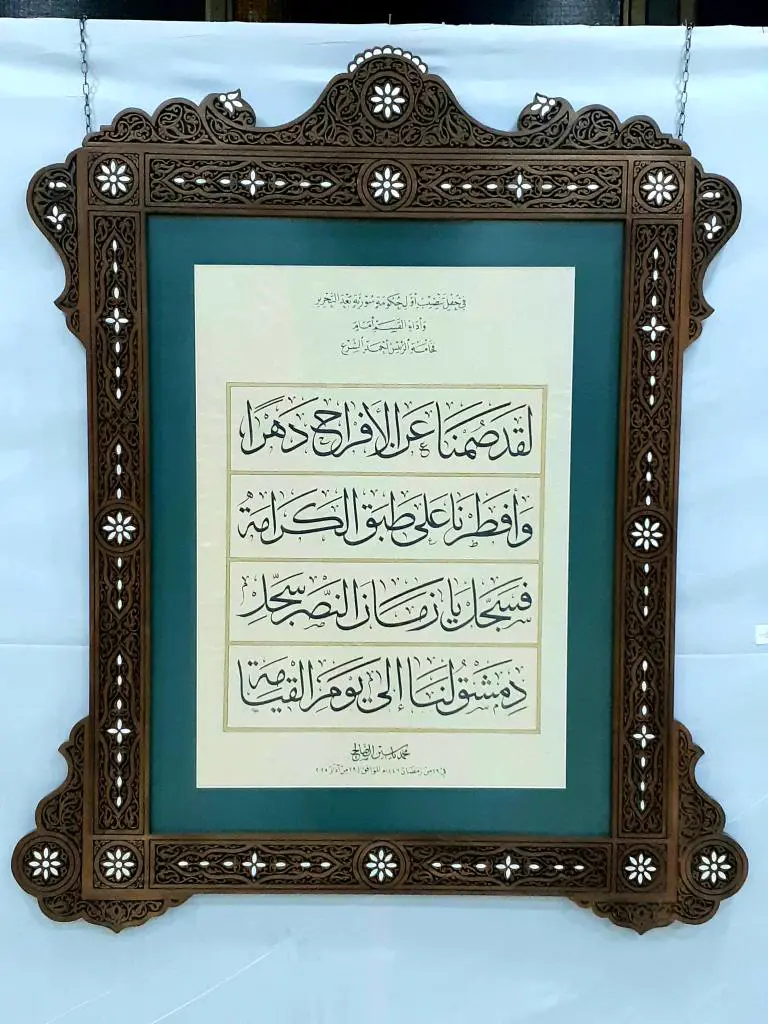 في حفل تنصيب أول حكومة سورية بعد التحرير
وأداء القسم أمام
فخامة الرئيس أحمد الشرع
لقد صمنا عن الأفراح دهرًا
وأفطرنا على طبق الكرامة
فسجل يا زمان النصر سجل
دمشق لنا إلى يوم القيامة
محمد ياسين الصالح
في ٢٩ من رمضان ١٤٤٦هـ الموافق ٢٩ من آذار ٢٠٢٥